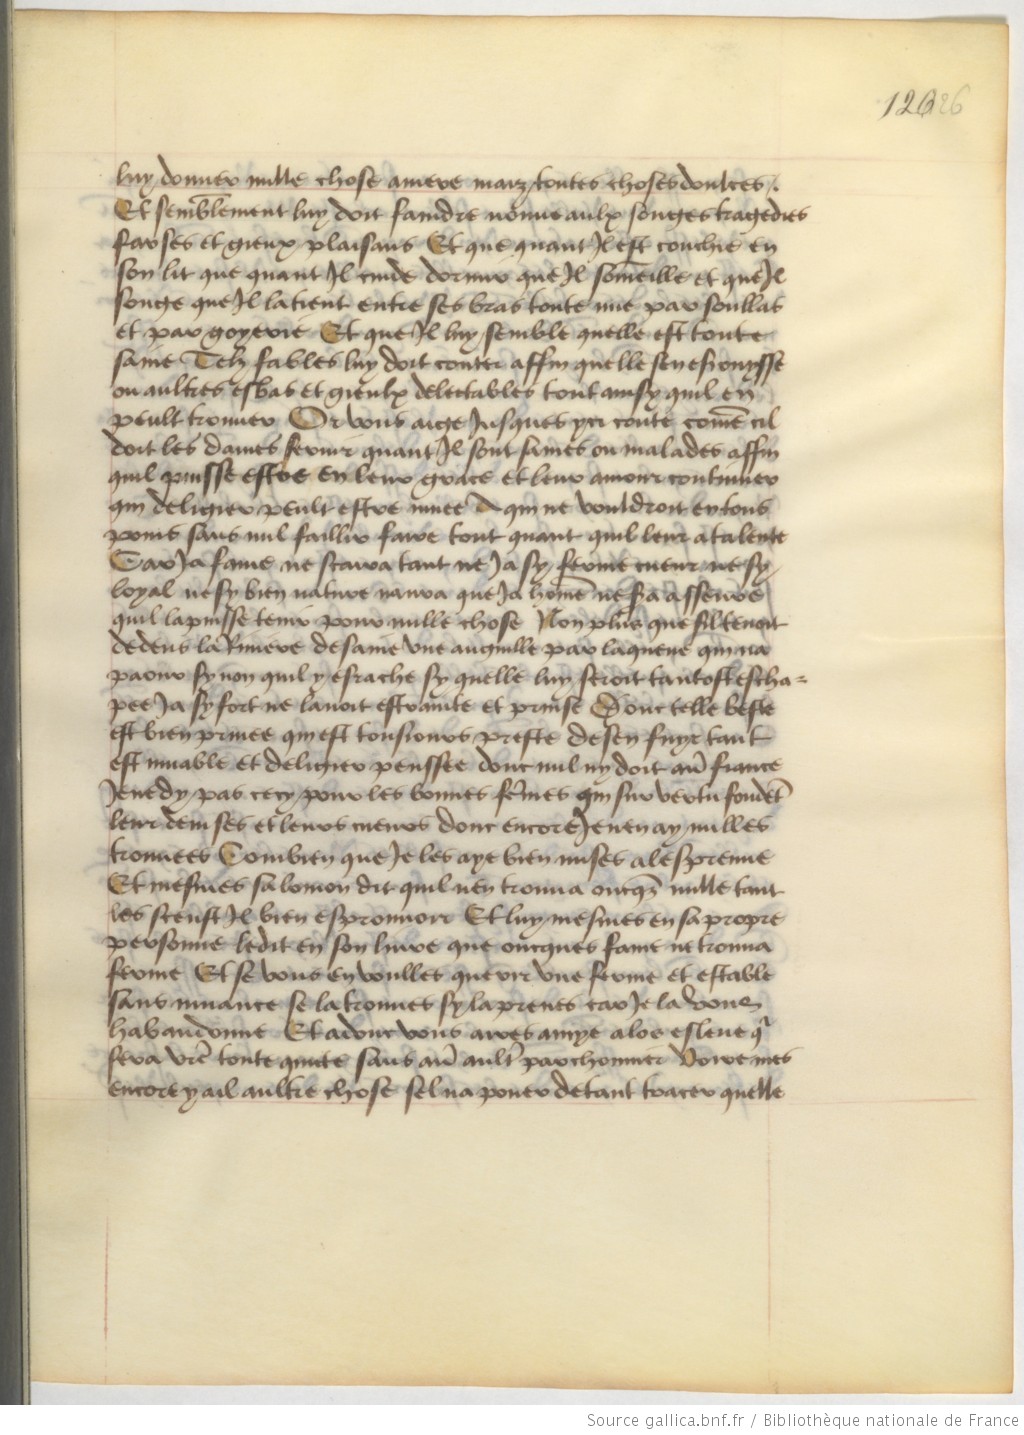 126 126
luy donner nulle chose amere maiz toutes choses doulces /.
Et semblement luy doit faindre nouueaulx songes tragedies
farses et gieux plaisans Et que quant Il est couchie en
son lit que quant Il cuide dormir que Il someille et que Il
songe que Il la tient entre ses bras toute nue par soullas
et par goyerie Et que Il luy semble quelle est toute
saine Telz fables luy doit conter affin quelle sen esiouysse
ou aultres esbas et gieulx delectables tout ainsy quil en
peult trouuer Or vous aige Jusques ycy conte comẽ cil
doit les dames seruir quant Il sont saines ou malades affin
quil puisse estre en leur grace et leur amour continuer
qui de ligier peult estre muee A qui ne vouldroit en tous
poins sans nul faillir faire tout quant quil leur atalente
Car Ja fame ne scaura tant ne Ja sy ferme cueur ne sy
loyal ne sy bien nature naura que Ja homẽ ne sera asseure
quil la puisse tenir pour nulle chose Non plus que sil tenoit
dedens la Riuiere de saine vne anguille par la queue qui na
paour sy non quil y esrache sy quelle luy seroit tantost escha-
pee Ja sy fort ne lauoit estrainte et prinse Donc telle beste
est bien priuee qui est tousiours preste de sen fuyr tant
est muable et de ligier penssee donc nul ny doit aũ fiance
Je ne dy pas cecy pour les bonnes fẽmes qui sur vertu fondẽt
leur deuises et leurs cueurs donc encore Je nen ay nulles
trouuees Combien que Je les aye bien mises a lesprenue
Et mesmes salomon dit quil nen trouua oncq̃s nulle tant
les sceust Il bien esprouuoir Et luy mesmes en sa propre
personne le dit en son liure que oncques fame ne trouua
ferme Et se vous en voulles querir vne ferme et estable
sans muance se la trouues sy la prenes car Je la vous
habandonne Et adonc vous aures amye a loe eslene q̃
sera vr̃e toute quitte sans aũ aultr̃ parchonnier Voire mes
encore y ail aultre chose sel na pouer de tant tracer quelle
Source gallica.bnf.fr / Bibliothèque nationale de France